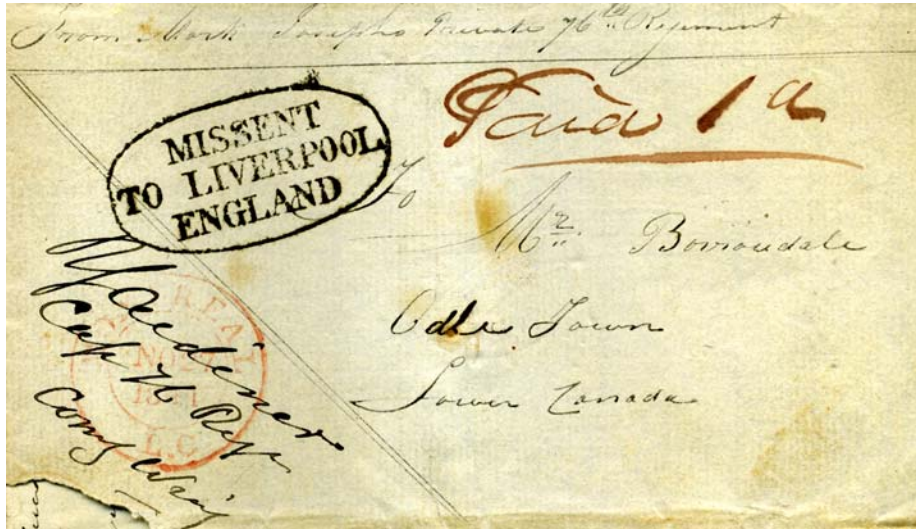 From Mark Josephs Private 76th Regiment
MISSENT
TO LIVERPOOL
ENGLAND
Paid 1d
To
Mr Borroudale
Odle Town
Lower Canada
Gardiner
Capt 76 Regt
Comg Wing
NO 27
L.C